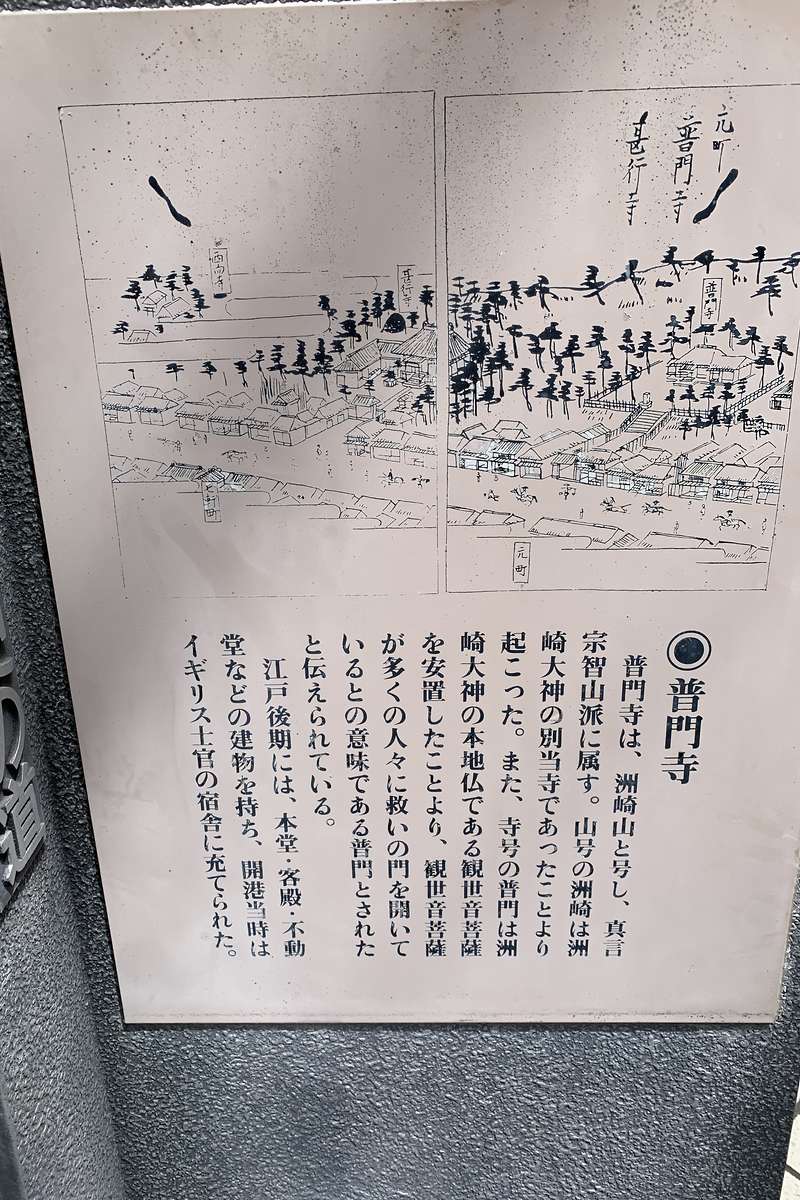 元町
普門寺
甚行寺
普門寺
元町
甚行寺
元町
◉普門寺
普門寺は、洲崎山と号し、真言
宗智山派に属す。山号の洲崎は洲
崎大神の別当寺であったことより
起こった。また、寺号の普門は洲
崎大神の本地仏である観世音菩薩
を安置したことより、観世音菩薩
が多くの人々に救いの門を開いて
いるとの意味である普門とされた
と伝えられている。
江戸後期には、本堂・客殿・不動
堂などの建物を持ち、開港当時は
イギリス士官の宿舎に充てられた。
の道